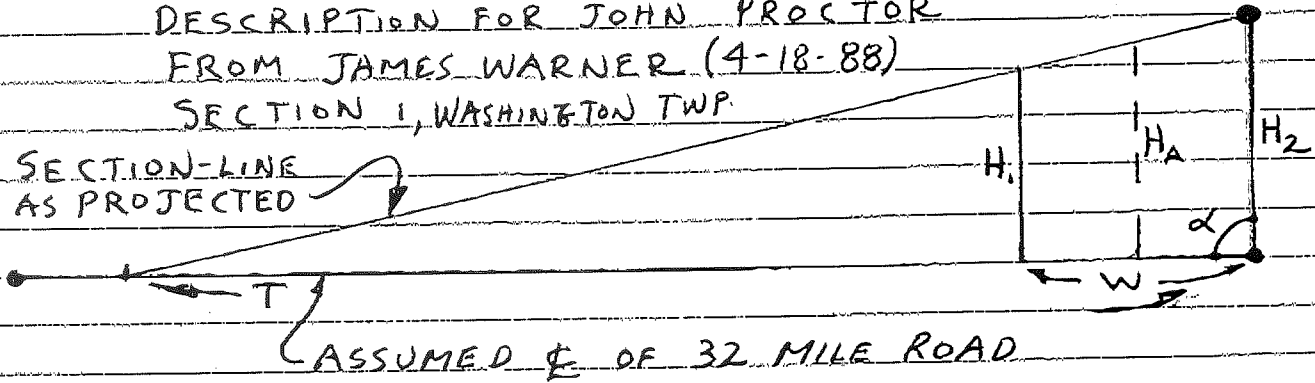 DESCRIPTION FOR JOHN PROCTOR
FROM JAMES WARNER (4-18-88)
SECTION 1, WASHINGTON TWP.
SECTION-LINE
AS PROJECTED
H1
HA
H2
α
T
W
ASSUMED ℄ OF 32 MILE ROAD